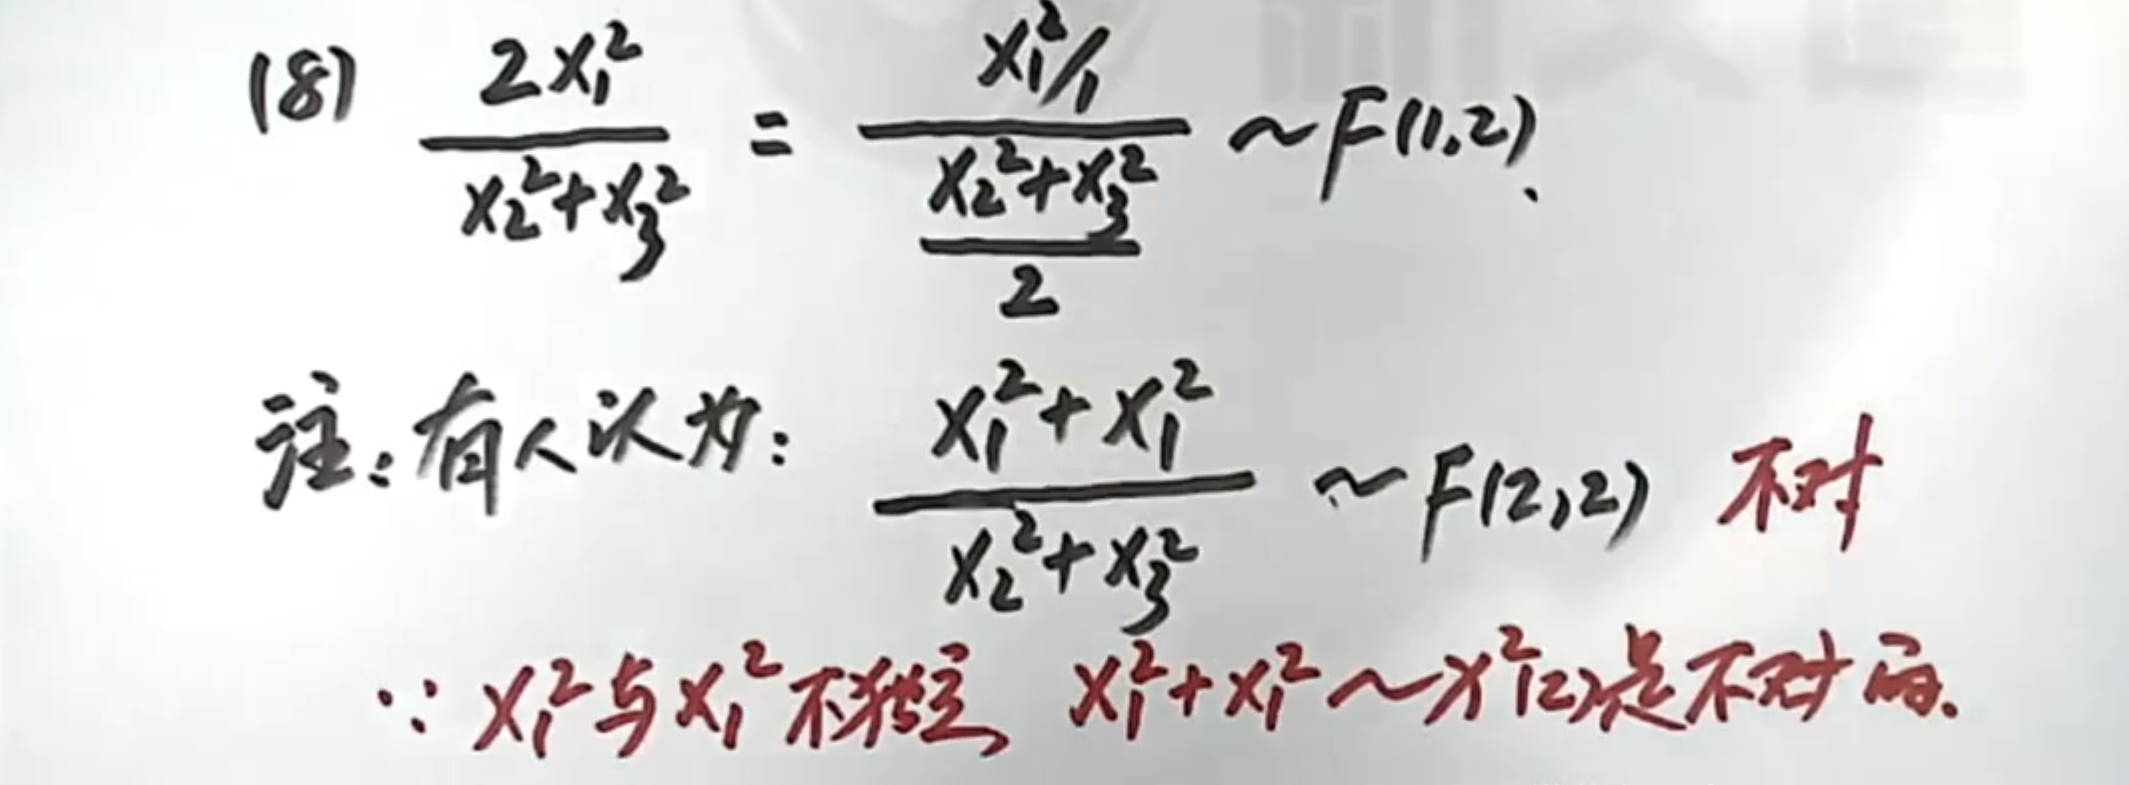 (8) \frac{2X_1^2}{X_2^2+X_3^2} = \frac{X_1^2/1}{\frac{X_2^2+X_3^2}{2}} \sim F(1,2).
注:有人认为: \frac{X_1^2+X_1^2}{X_2^2+X_3^2} \sim F(2,2) 不对
∵ X_1^2与X_1^2不独立, X_1^2+X_1^2 \sim χ^2(2)是不对的.